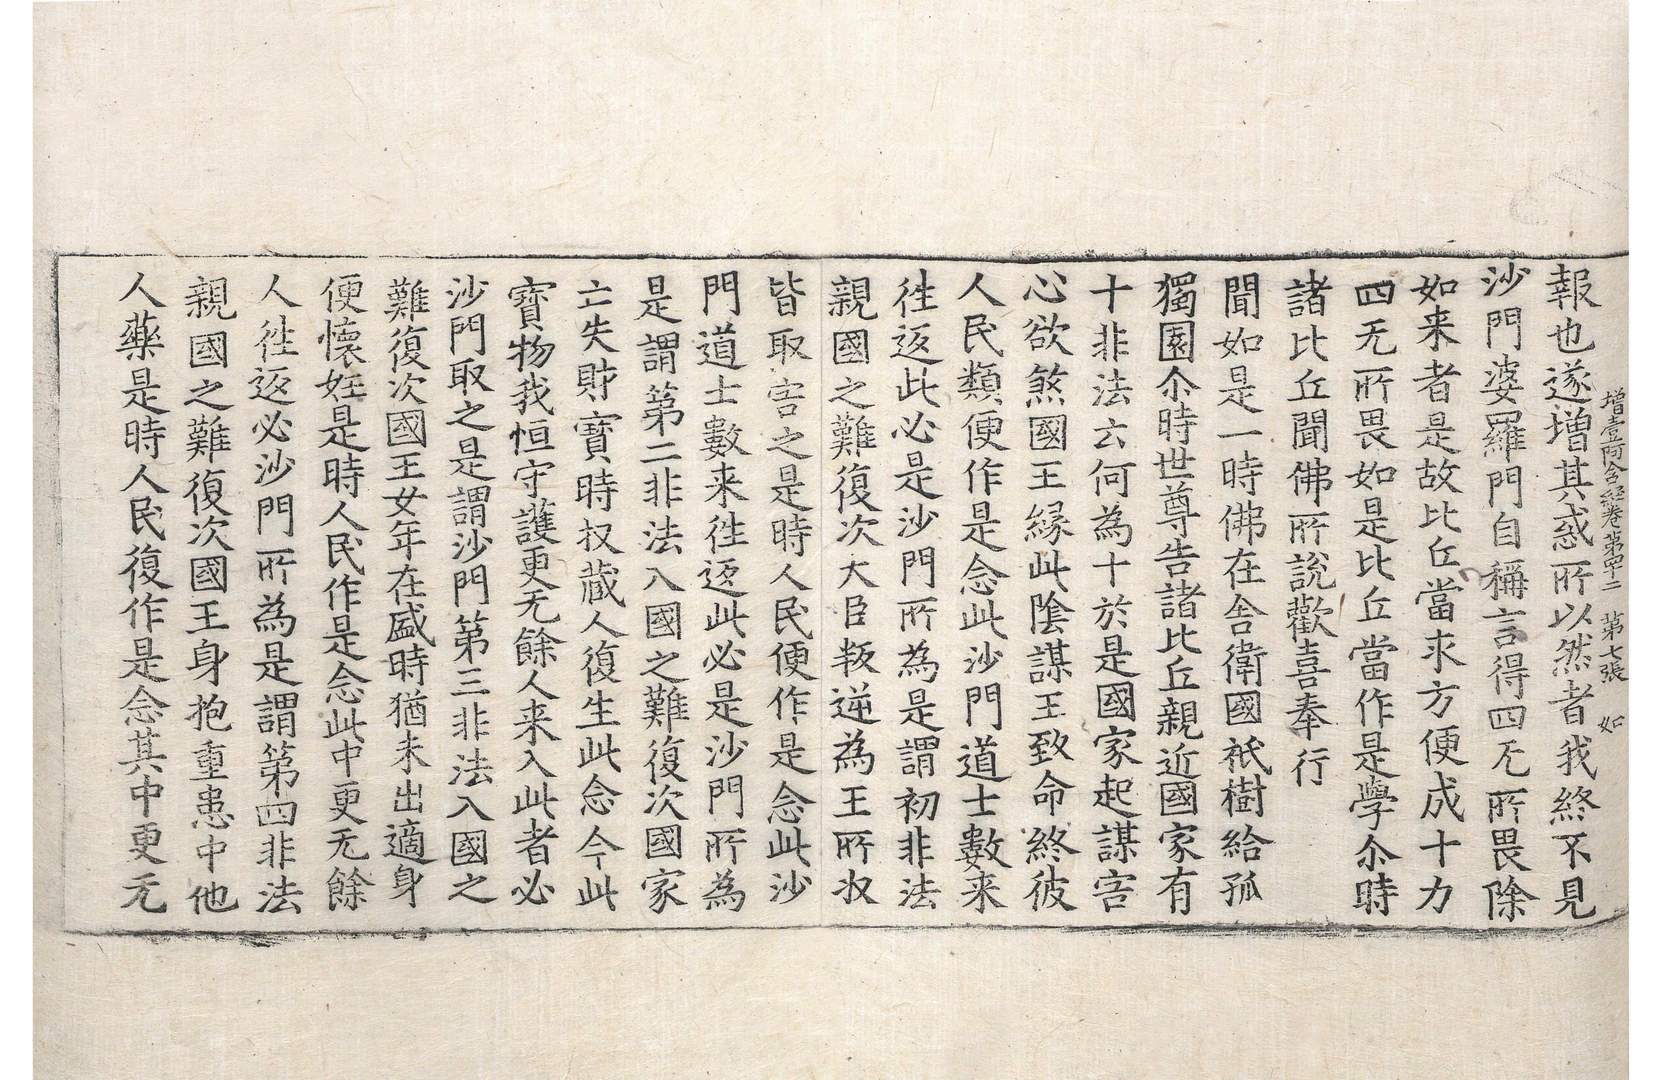 增壹阿含經卷第四十二 第七張 如
報也遂增其惑所以然者我終不見
沙門婆羅門自稱言得四无所畏除
如来者是故比丘當求方便成十力
四无所畏如是比丘當作是學尒時
諸比丘聞佛所說歡喜奉行
聞如是一時佛在舍衛國祇樹給孤
獨園尒時世尊告諸比丘親近國家有
十非法云何為十於是國家起謀害
心欲煞國王緣此陰謀王致命終彼
人民類便作是念此沙門道士數来
往返此必是沙門所為是謂初非法
親國之難復次大臣叛逆為王所収
皆取害之是時人民便作是念此沙
門道士數来往返此必是沙門所為
是謂第二非法入國之難復次國家
亡失財寶時収蔵人復生此念今此
寶物我恒守護更无餘人来入此者必
沙門取之是謂沙門第三非法入國之
難復次國王女年在盛時猶未出適身
便懷妊是時人民作是念此中更无餘
人往返必沙門所為是謂第四非法
親國之難復次國王身抱重患中他
人藥是時人民復作是念其中更无